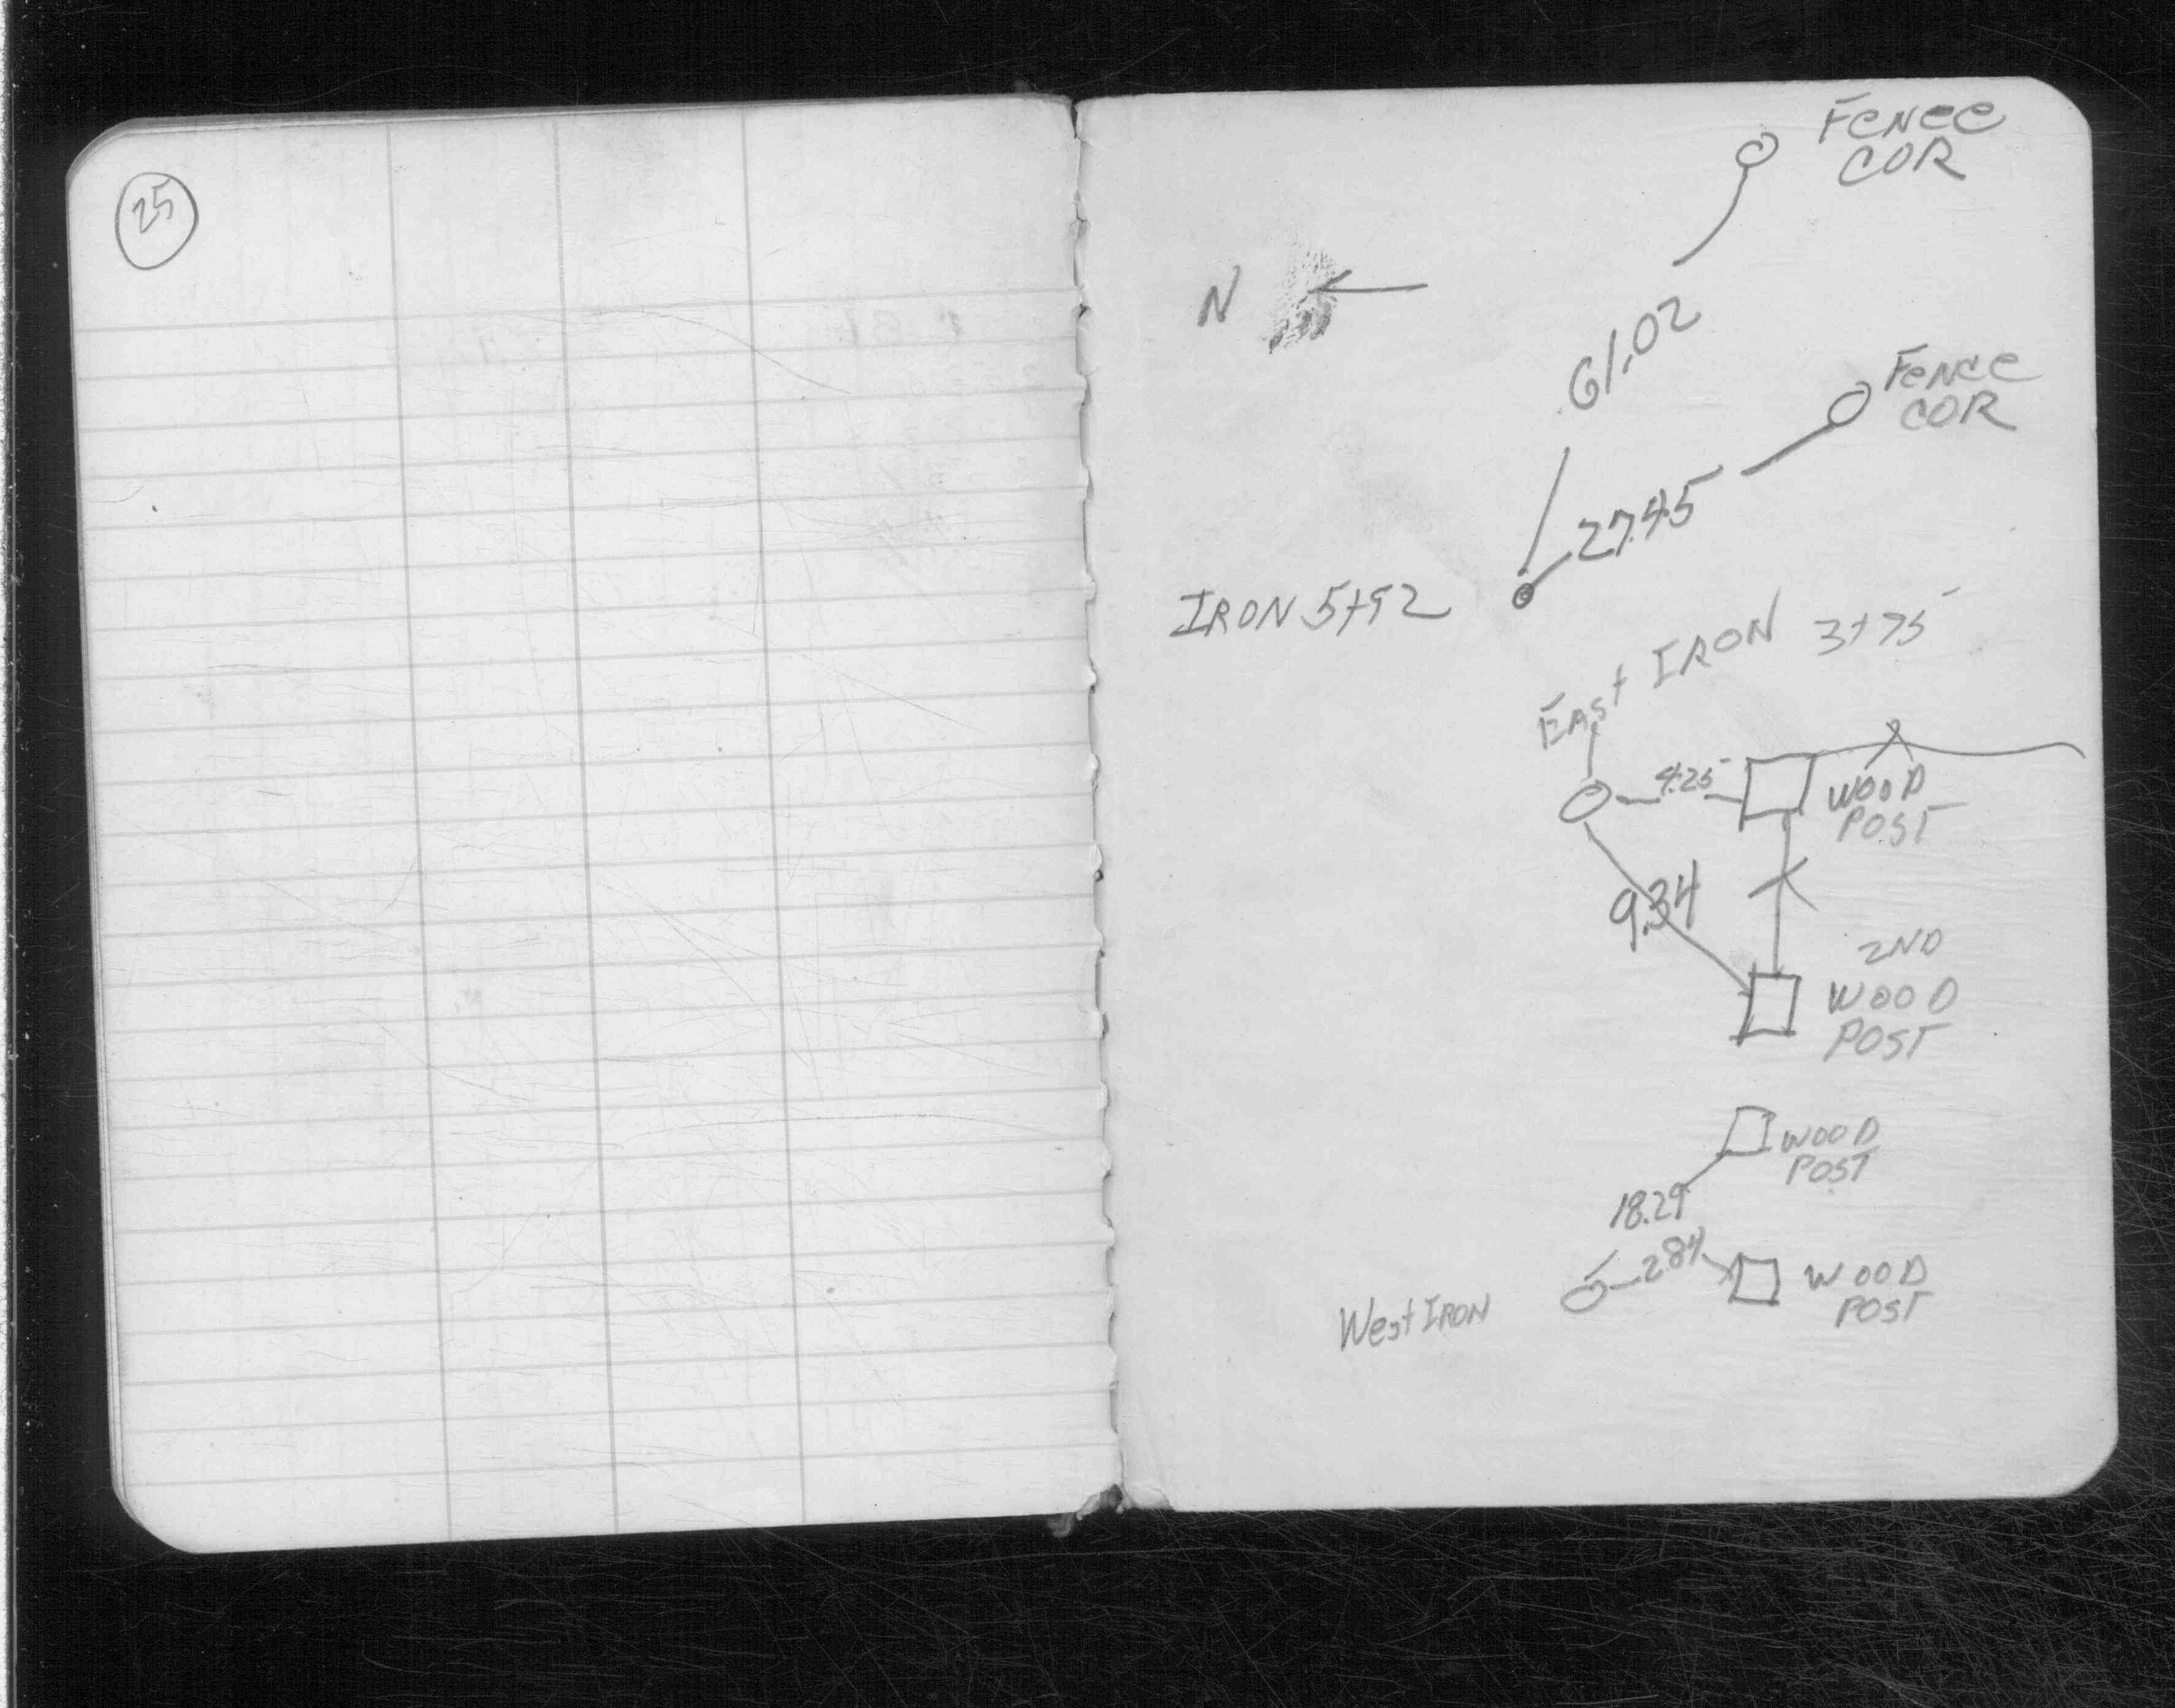 25
FENCE
COR
N
61.02
FENCE
COR
27.45
IRON 5+92
EAST IRON 3+75
4.25
WOOD
POST
9.34
2ND
WOOD
POST
WOOD
POST
18.29
2.84
WOOD
POST
West IRON